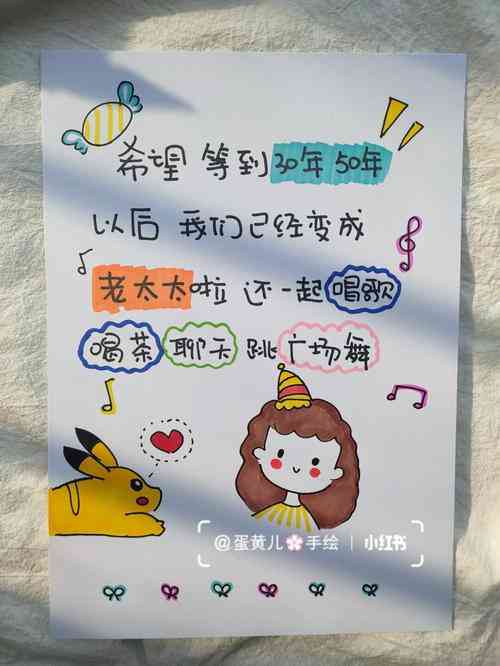 希望 等到30年 50年
以后 我们已经变成
老太太啦 还一起唱歌
喝茶 聊天 跳广场舞
@蛋黄儿🌸手绘 | 小红书